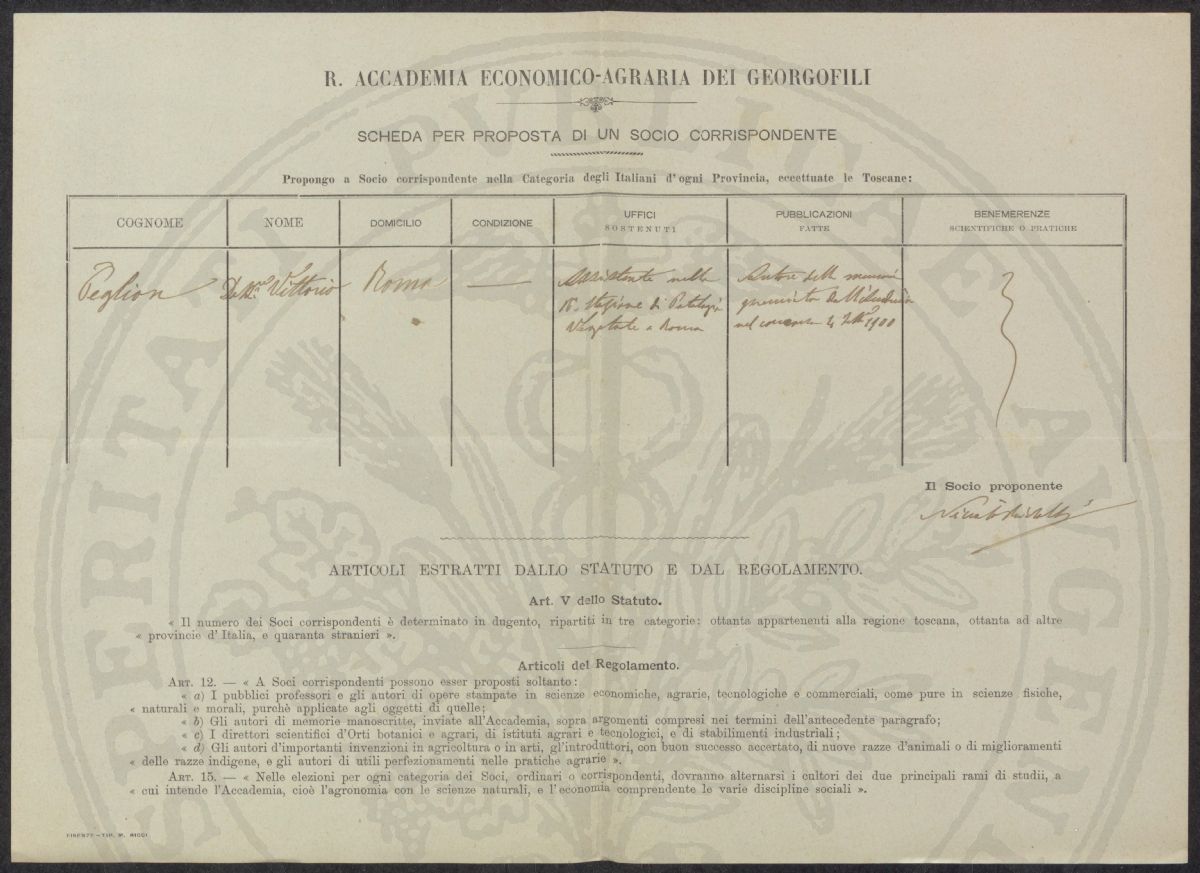 R. ACCADEMIA ECONOMICO-AGRARIA DEI GEORGOFILI
SCHEDA PER PROPOSTA DI UN SOCIO CORRISPONDENTE
Propongo a Socio corrispondente nella Categoria degli Italiani d'ogni Provincia, eccettuate le Toscane:
COGNOME
NOME
DOMICILIO
CONDIZIONE
UFFICI
SOSTENUTI
PUBBLICAZIONI
FATTE
BENEMERENZE
SCIENTIFICHE O PRATICHE
Peglion
Vittorio
Roma
Assistente nella
R. Stazione di Patologia
Vegetale a Roma
Autore
nel concorso 1900
Il Socio proponente
ARTICOLI ESTRATTI DALLO STATUTO E DAL REGOLAMENTO.
Art. V dello Statuto.
« Il numero dei Soci corrispondenti è determinato in dugento, ripartiti in tre categorie: ottanta appartenenti alla regione toscana, ottanta ad altre
« provincie d'Italia, e quaranta stranieri ».
Articoli del Regolamento.
ART. 12. — « A Soci corrispondenti possono esser proposti soltanto:
« a) I pubblici professori e gli autori di opere stampate in scienze economiche, agrarie, tecnologiche e commerciali, come pure in scienze fisiche,
« naturali e morali, purchè applicate agli oggetti di quelle;
« b) Gli autori di memorie manoscritte, inviate all'Accademia, sopra argomenti compresi nei termini dell'antecedente paragrafo;
« c) I direttori scientifici d'Orti botanici e agrari, di istituti agrari e tecnologici, e di stabilimenti industriali;
« d) Gli autori d'importanti invenzioni in agricoltura o in arti, gl'introduttori, con buon successo accertato, di nuove razze d'animali o di miglioramenti
« delle razze indigene, e gli autori di utili perfezionamenti nelle pratiche agrarie ».
ART. 15. — « Nelle elezioni per ogni categoria dei Soci, ordinari o corrispondenti, dovranno alternarsi i cultori dei due principali rami di studii, a
« cui intende l'Accademia, cioè l'agronomia con le scienze naturali, e l'economia comprendente le varie discipline sociali ».
FIRENZE — TIP. M. RICCI